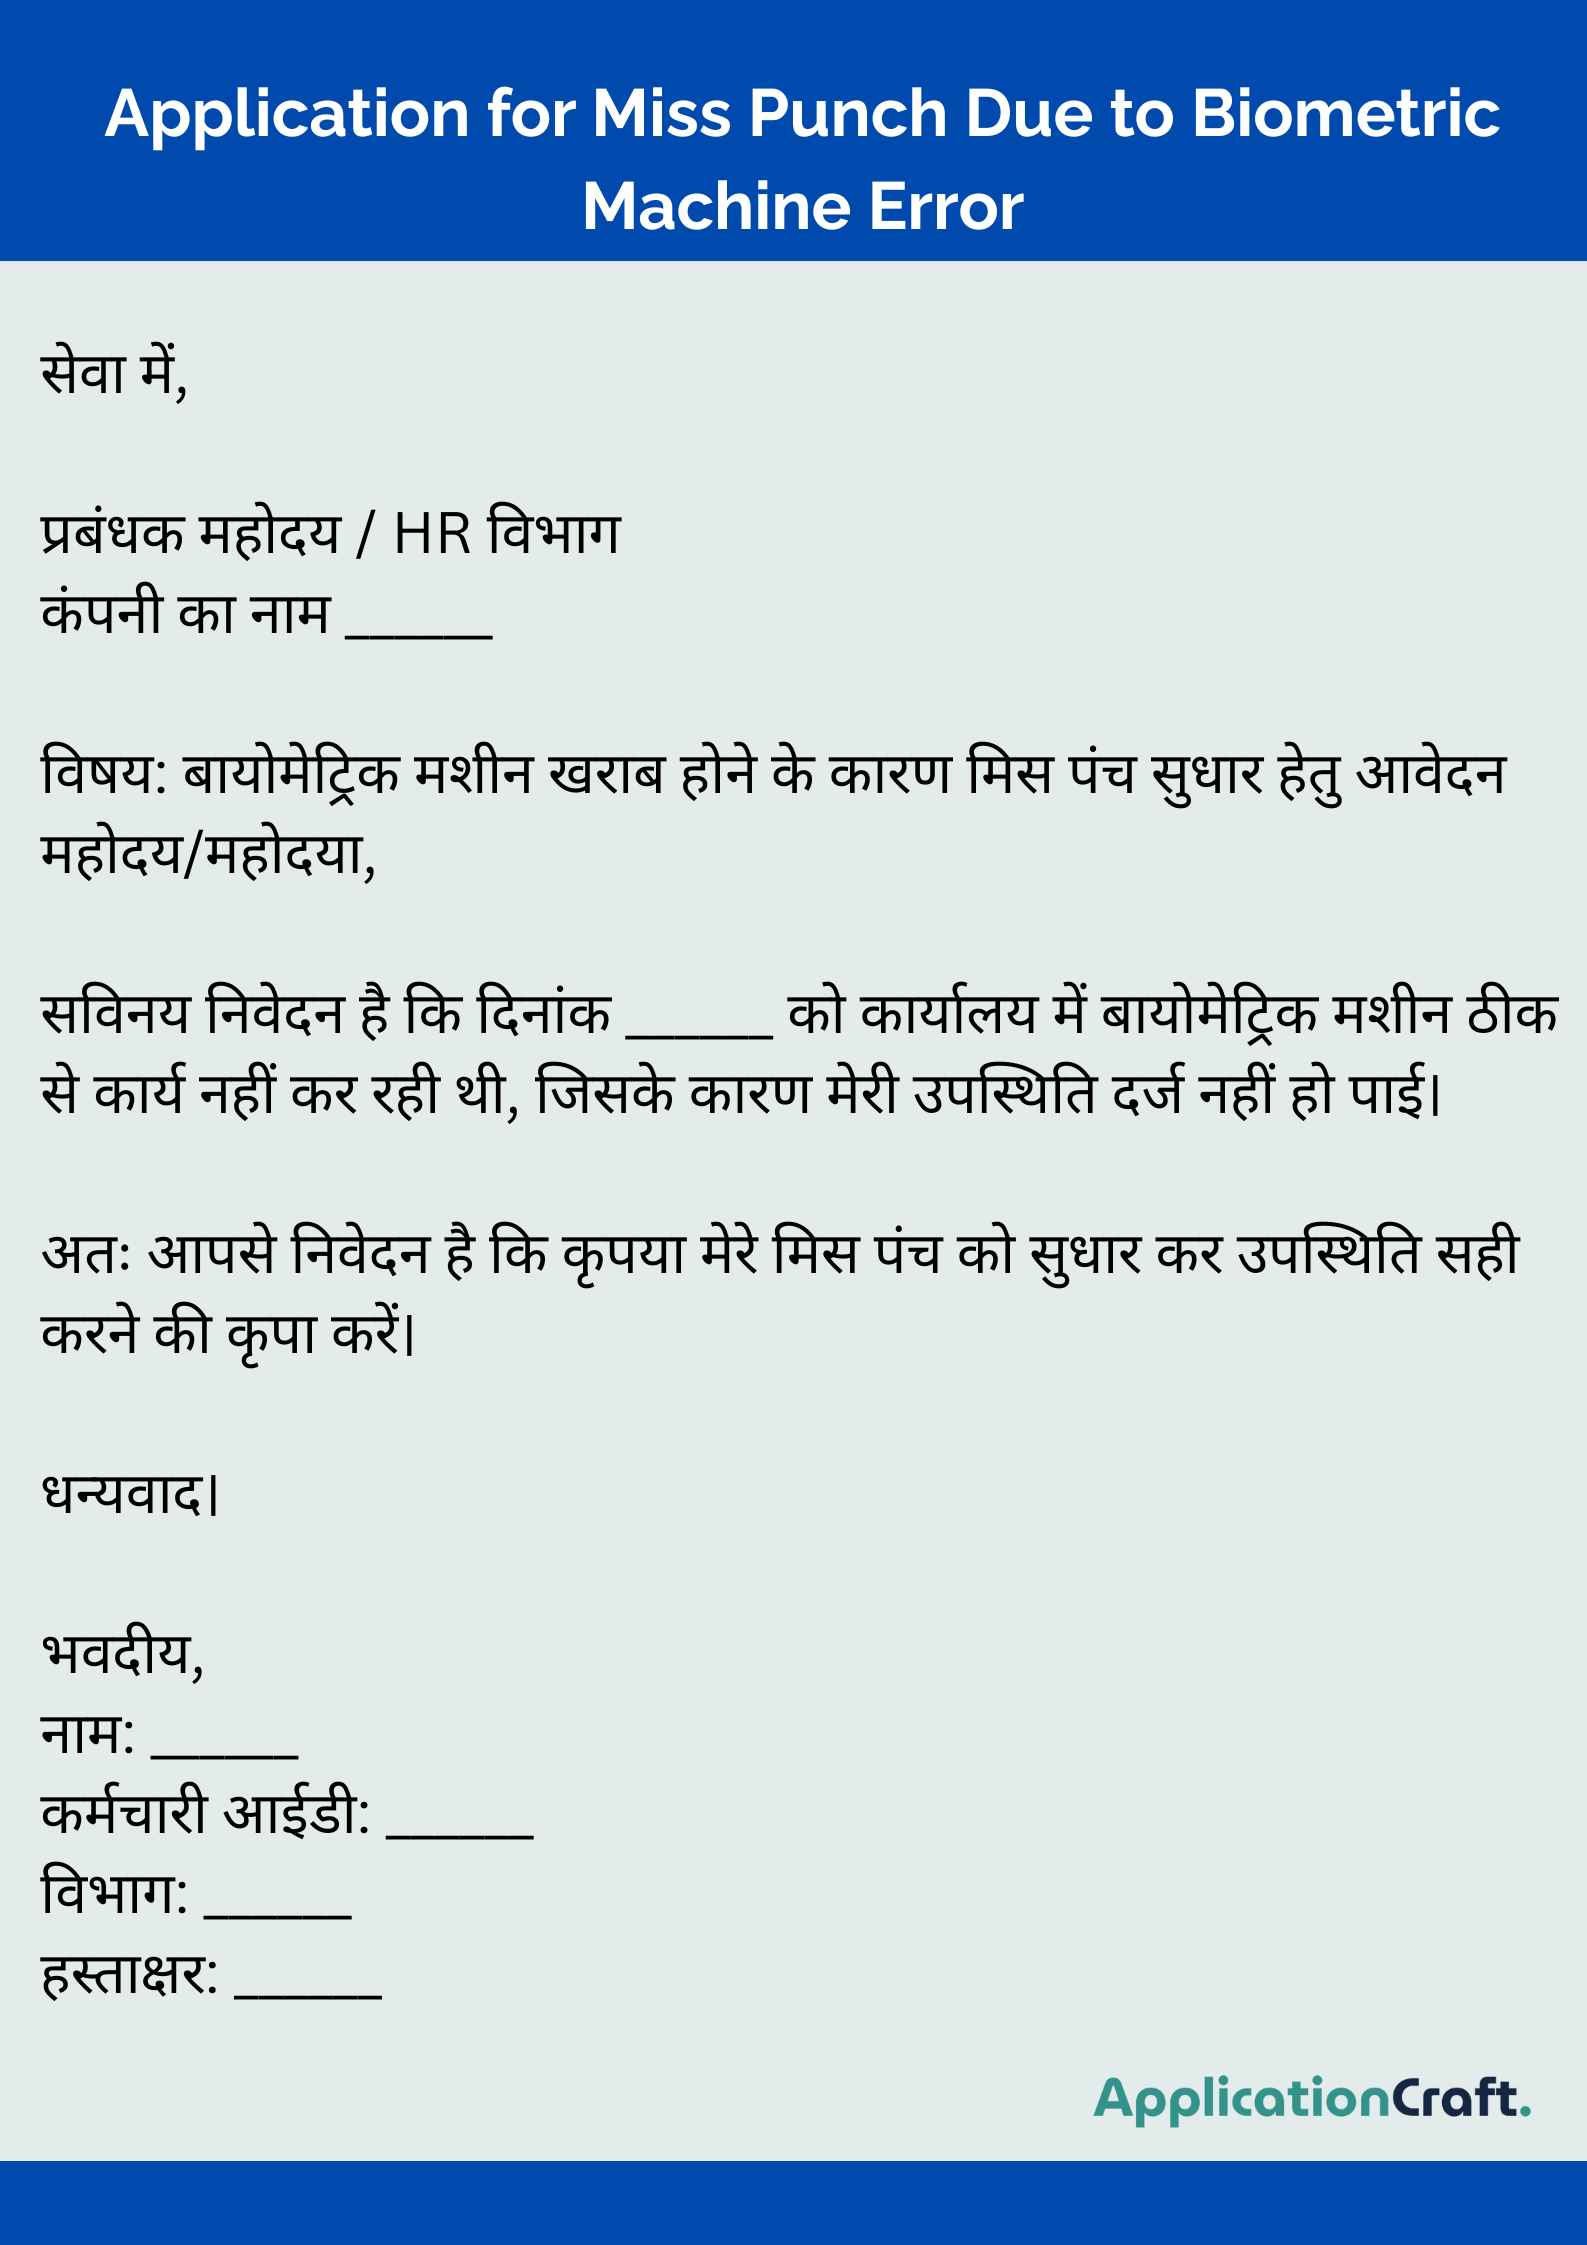 Application for Miss Punch Due to Biometric
Machine Error
सेवा में,
प्रबंधक महोदय / HR विभाग
कंपनी का नाम ______
विषय: बायोमेट्रिक मशीन खराब होने के कारण मिस पंच सुधार हेतु आवेदन
महोदय/महोदया,
सविनय निवेदन है कि दिनांक ______ को कार्यालय में बायोमेट्रिक मशीन ठीक
से कार्य नहीं कर रही थी, जिसके कारण मेरी उपस्थिति दर्ज नहीं हो पाई।
अतः आपसे निवेदन है कि कृपया मेरे मिस पंच को सुधार कर उपस्थिति सही
करने की कृपा करें।
धन्यवाद।
भवदीय,
नाम: ______
कर्मचारी आईडी: ______
विभाग: ______
हस्ताक्षर: ______
ApplicationCraft.